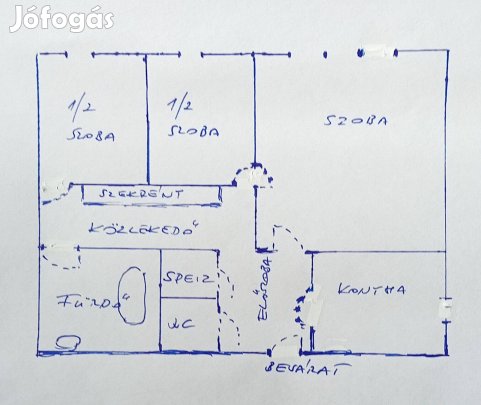 Jófogás
1/2
SZOBA
1/2
SZOBA
SZOBA
SZEKRÉNY
KÖZLEKEDŐ
SPEIZ
ELŐSZOBA
KONYHA
FÜRDŐ
WC
BEJÁRAT